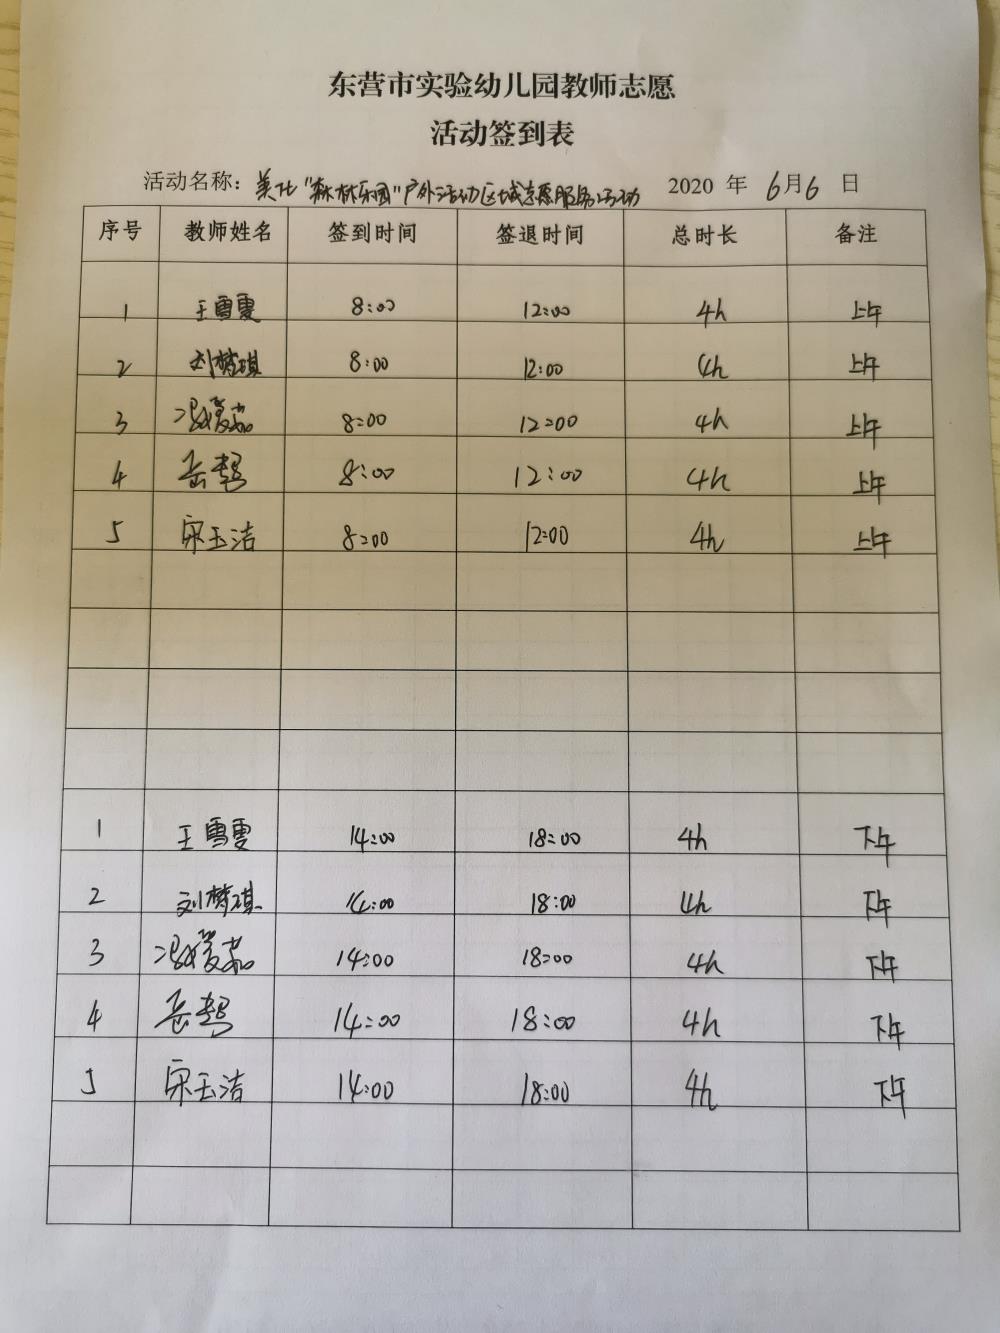 东营市实验幼儿园教师志愿
活动签到表
活动名称：美化“森林乐园”户外活动区域志愿服务活动 2020 年 6月6 日
序号 教师姓名 签到时间 签退时间 总时长 备注
1 王雪雯 8:00 12:00 4h 上午
2 刘梦琪 8:00 12:00 4h 上午
3 8:00 12:00 4h 上午
4 岳 8:00 12:00 4h 上午
5 宋玉洁 8:00 12:00 4h 上午
1 王雪雯 14:00 18:00 4h 下午
2 刘梦琪 14:00 18:00 4h 下午
3 14:00 18:00 4h 下午
4 岳 14:00 18:00 4h 下午
5 宋玉洁 14:00 18:00 4h 下午